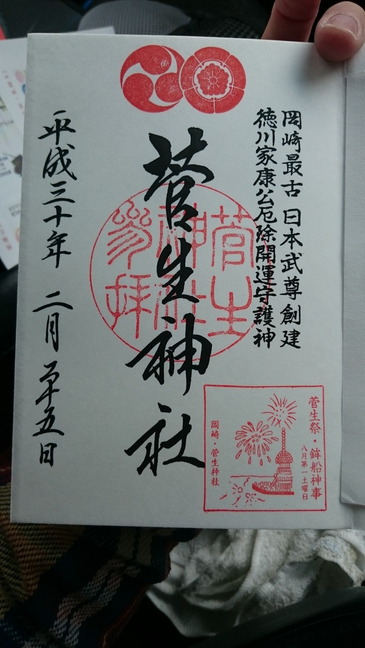 岡崎最古 日本武尊創建
徳川家康公厄除開運守護神
菅生神社
菅生
神社
參拝
平成三十年 二月 二十五日
菅生祭・鉾船神事
八月第一土曜日
岡崎・菅生神社